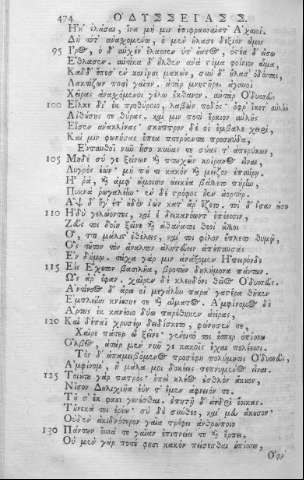 474 ὈΔΥΣΣΕΊΑΣ Σ.
Ἦκ' ἐλάσαι, ἵνα μή μιν ἐπιφρασσαίατ' Ἀχαιοί.
Δὴ τότ' ἀνασχομένω, ὁ μὲν ἤλασε δεξιὸν ὦμον
95 Ἶρος, ὁ δ' αὐχέν' ἔλασσεν ὑπ' οὔατος, ὀστέα δ' εἴσω
Ἔθλασεν· αὐτίκα δ' ἦλθεν ἀνὰ στόμα φοίνιον αἷμα,
Κὰδδ' ἔπεσ' ἐν κονίῃσι μακὼν, σὺν δ' ἤλασ' ὀδόντας,
Λακτίζων ποσὶ γαῖαν· ἀτὰρ μνηστῆρες ἀγαυοὶ
Χεῖρας ἀνασχόμενοι γέλῳ ἔκθανον. αὐτὰρ Ὀδυσσεὺς
100 Εἷλκε διὲκ προθύροιο, λαβὼν ποδὸς· ὄφρ' ἵκετ' αὐλὴν
Αἰθούσης τε θύρας. καί μιν ποτὶ ἕρκιον αὐλῆς
Εἷσεν ἀνακλίνας· σκῆπτρον δέ οἱ ἔμβαλε χειρὶ,
Καί μιν φωνήσας ἔπεα πτερόεντα προσηύδα,
Ἐνταυθοῖ νῦν ἧσο κύνας τε σύας τ' ἀπερύκων·
105 Μηδὲ σύ γε ξείνων καὶ πτωχῶν κοίρανος εἶναι,
Λυγρὸς ἐὼν· μή πού τι κακὸν καὶ μεῖζον ἐπαύρῃ.
Ἦ ῥά, καὶ ἀμφ' ὤμοισιν ἀεικέα βάλλετο πήρην
Πυκνὰ ῥωγαλέην· ἐν δὲ στρόφος ἦεν ἀορτήρ.
Ἂψ δ' ὅγ' ἐπ' οὐδὸν ἰὼν κατ' ἄρ' ἕζετο. τοὶ δ' ἴσαν εἴσω
110 Ἡδὺ γελώοντες, καὶ ἐδεικανόωντ' ἐπέεσσιν,
Ζεύς τοι δοίη ξεῖνε καὶ ἀθάνατοι θεοὶ ἄλλοι
Ὅ, ττι μάλιστ' ἐθέλεις, καί τοι φίλον ἔπλετο θυμῷ,
Ὃς τοῦτον τὸν ἄναλτον ἀλητεύειν ἀπέπαυσας
Ἐν δήμῳ. τάχα γάρ μιν ἀνάξομεν Ἤπειρόνδε
115 Εἰς Ἔχετον βασιλῆα, βροτῶν δηλήμονα πάντων.
Ὣς ἄρ' ἔφαν, χαῖρεν δὲ κλεηδόνι δῖος Ὀδυσσεύς.
Ἀντίνοος δ' ἄρα οἱ μεγάλην παρὰ γαστέρα θῆκεν
Ἐμπλείην κνίσσης τε καὶ αἵματος. Ἀμφίνομος δὲ
Ἄρτους ἐκ κανέοιο δύω παρέθηκεν ἀείρας,
120 Καὶ δέπαϊ χρυσέῳ δειδίσκετο, φώνησέν τε,
Χαῖρε πάτερ ὦ ξεῖνε· γένοιτό τοι ἔσπερ ὀπίσσω
Ὄλβος, ἀτὰρ μὲν νῦν γε κακοῖς ἔχεαι πολέεσσι.
Τὸν δ' ἀπαμειβόμενος προσέφη πολύμητις Ὀδυσσεύς,
Ἀμφίνομ', ἦ μάλα μοι δοκέεις πεπνυμένος εἶναι.
125 Τοίου γὰρ πατρὸς· ἐπεὶ κλέος ἐσθλὸν ἄκουον,
Νῖσον Δουλιχιῆα ἐΰν τ' ἔμεν ἀφνειόν τε.
Τοῦ σ' ἔκ φασι γενέσθαι. ἐπητῇ δ' ἀνδρὶ ἔοικας.
Τοὔνεκά τοι ἐρέω· σὺ δὲ σύνθεο, καί μευ ἄκουσον·
Οὐδὲν ἀκιδνότερον γαῖα τρέφει ἀνθρώποιο
130 Πάντων ὅσσά τε γαῖαν ἐπιπνείει τε καὶ ἕρπει.
Οὐ μὲν γάρ ποτέ φησι κακὸν πείσεσθαι ὀπίσσω,